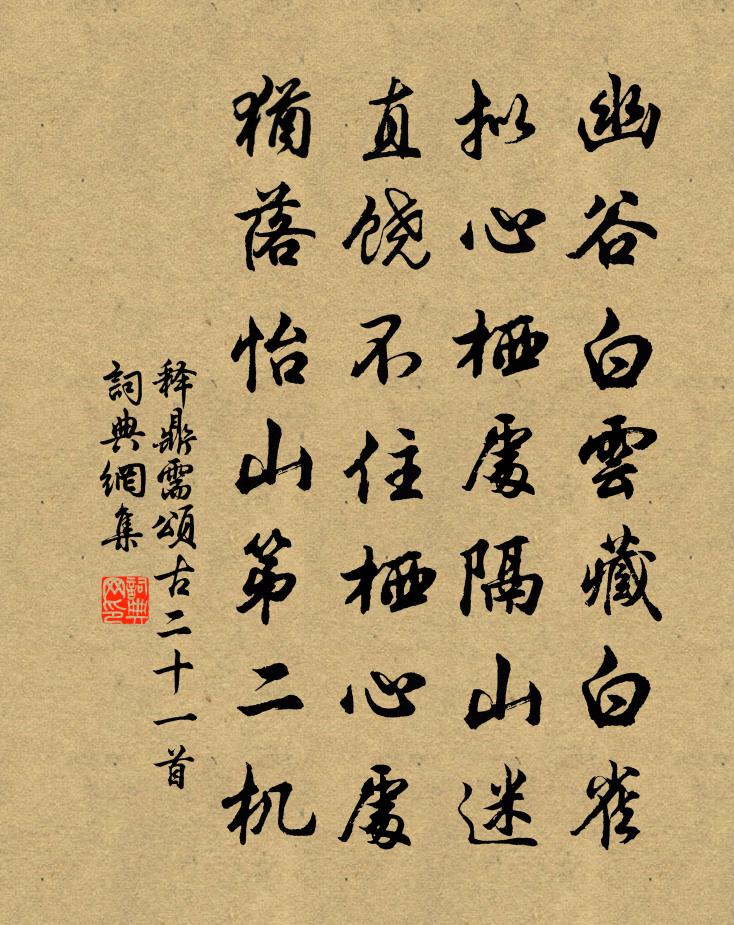 幽谷白雲藏白雀
拟心栖處隔山迷
直饶不住栖心處
猶落怡山第二机
释鼎需頌古二十一首
詞典網集
詞典网印